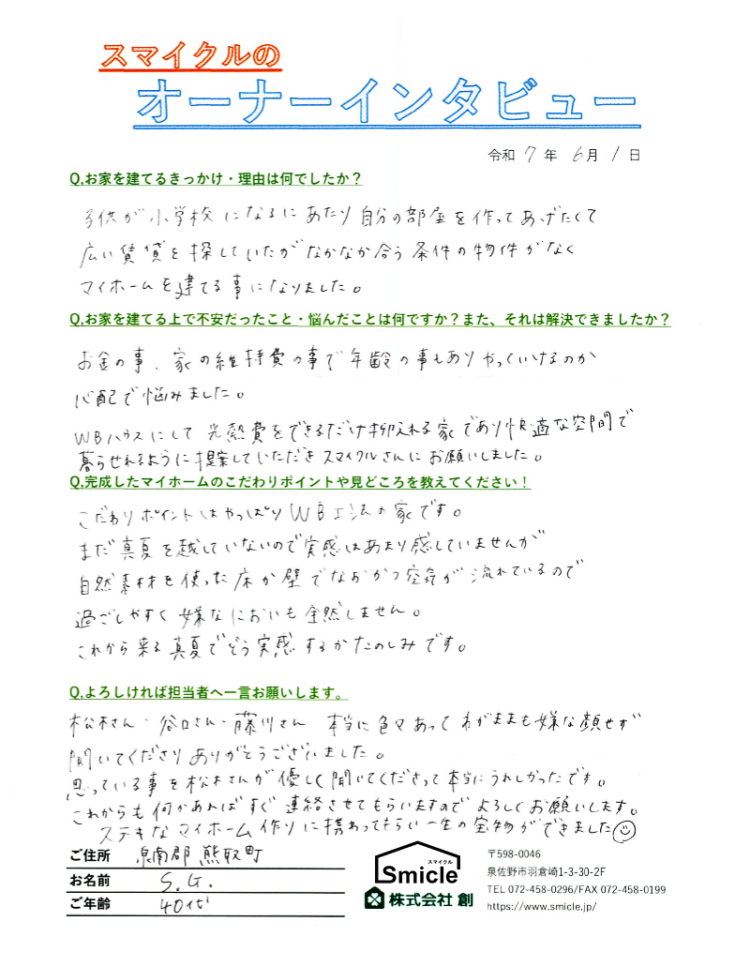 スマイクルの
オーナーインタビュー
令和 7 年 6月 1 日
Q.お家を建てるきっかけ・理由は何でしたか？
子供が小学校になるにあたり自分の部屋を作ってあげたくて
広い賃貸を探していたがなかなか合う条件の物件がなく
マイホームを建てる事になりました。
Q.お家を建てる上で不安だったこと・悩んだことは何ですか？また、それは解決できましたか？
お金の事、家の維持費の事で年齢の事もありやっていけるのか
心配で悩みました。
WBハウスにして光熱費をできるだけ抑えれる家であり快適な空間で
暮らせれるように提案していただきスマイクルさんにお願いしました。
Q.完成したマイホームのこだわりポイントや見どころを教えてください！
こだわりポイントはやっぱりWB工法の家です。
まだ真夏を越していないので実感はあまり感していませんが
自然素材を使った床か壁でなおかつ空気が流れているので
過ごしやすく嫌なにおいも全然しません。
これから来る真夏でどう実感するかたのしみです。
Q.よろしければ担当者へ一言お願いします。
松木さん・谷口さん・藤川さん 本当に色々あってわがままも嫌な顔せず
聞いてくださりありがとうございました。
思っている事を松木さんが優しく聞いてくださって本当にうれしかったです。
これからも何かあればすぐ連絡させてもらいますのでよろしくお願いします。
ステキなマイホーム作りに携わってもらい一生の宝物ができました
ご住所 泉南郡熊取町
お名前 S.G.
ご年齢 40代
スマイクル
Smicle
株式会社 創
〒598-0046
泉佐野市羽倉崎1-3-30-2F
TEL 072-458-0296/FAX 072-458-0199
https://www.smicle.jp/